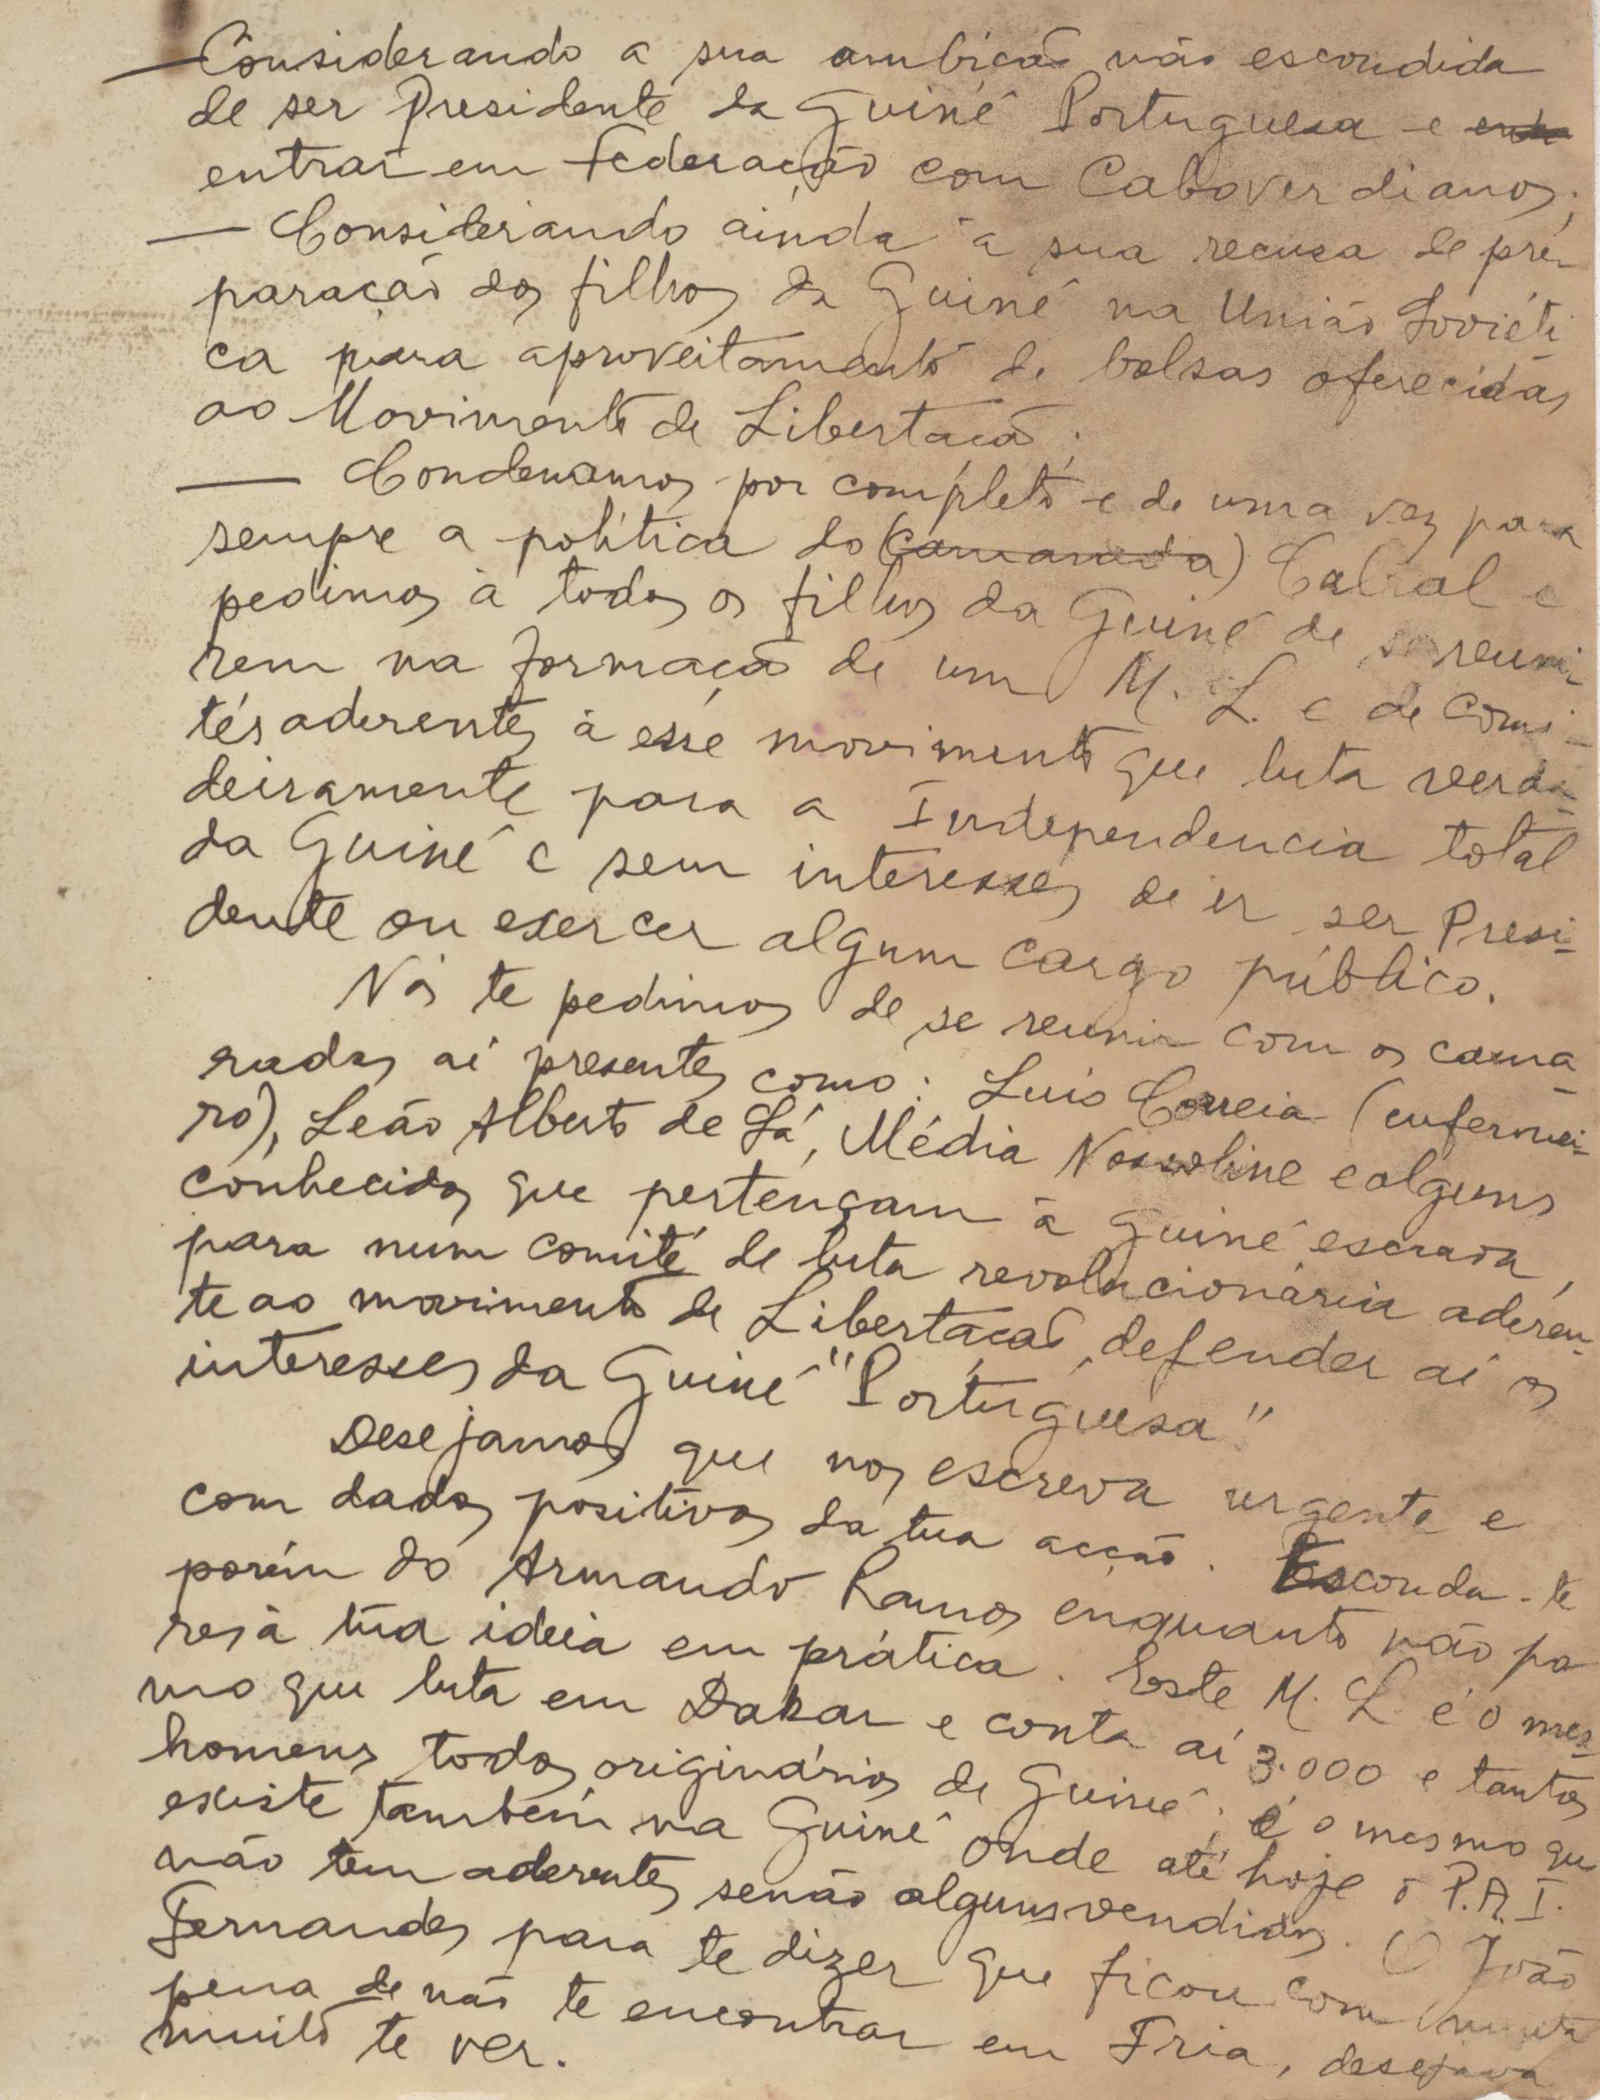 — Considerando a sua ambicão não escondida
de ser Presidente da Guiné Portuguesa e
entrar em Federação com Caboverdianos;
— Considerando ainda a sua recusa de pré-
paração dos filhos da Guiné na União Soviéti
ca para aproveitamento de bolsas oferecidas
ao Movimento de Libertacão;
— Condenamos por completo e de uma vez para
sempre a política do (camarada) Cabral e
pedimos à todos os filhos da Guiné de se reuni
rem na formação de um M. L. e de comi-
tés aderentes à esse movimento que luta verda-
deiramente para a Independencia total
da Guiné e sem interesses de ir ser Presi-
dente ou exercer algum cargo público.
Nós te pedimos de se reunir com os cama-
radas aí presentes como: Luis Correia (enfermei-
ro), Leão Alberto de Sá, Média e alguns
conhecidos que pertençam à Guiné escrava,
para num comité de luta revolucionária adéren-
te ao movimento de Libertacão, defender aí os
interesses da Guiné "Portuguesa"
Desejamos que nos escreva urgente e
com dados positivos da tua acção. Esconda-te
porém do Armando Ramos enquanto não po
res à tua ideia em prática. Este M. L é o mes-
mo que luta em Dakar e conta aí 3.000 e tantos
homens todos originários de Guiné; é o mesmo que
existe também na Guiné onde até hoje o P.A.I.
não tem aderentes senão alguns vendidos. O João
Fernandes para te dizer que ficou com muita
pena de não te encontrar em Fria, desejava
muito te ver.